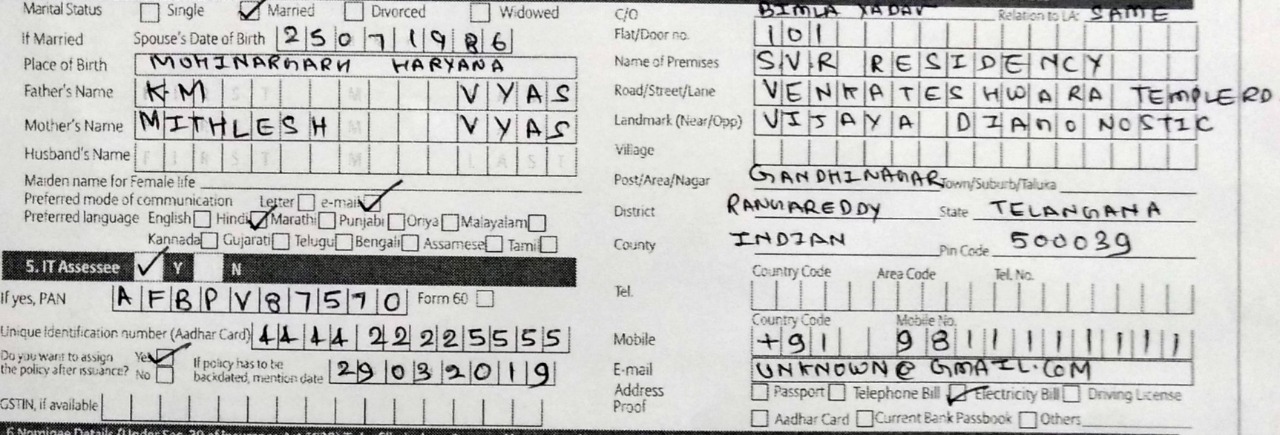 Marital Status Single Married Divorced Widowed
If Married Spouse's Date of Birth 25071986
Place of Birth MOHINARGARH HARYANA
Father's Name KM VYAS
Mother's Name MITHLESH VYAS
Husband's Name FIRST M LAST
Maiden name for Female life
Preferred mode of communication Letter e-mail
Preferred language English Hindi Marathi Punjabi Oriya Malayalam
Kannada Gujarati Telugu Bengali Assamese Tamil
5. IT Assessee Y N
If yes, PAN AFBPV87570 Form 60
Unique Identification number (Aadhar Card) 444422225555
Do you want to assign the policy after issuance? Yes No If policy has to be backdated, mention date 29032019
GSTIN, if available
C/O BIMLA YADAV Relation to LA: SAME
Flat/Door no. 101
Name of Premises SVR RESIDENCY
Road/Street/Lane VENKATESHWARA TEMPLE RD
Landmark (Near/Opp) VIJAYA DIANONOSTIC
Village
Post/Area/Nagar GANDHINAGAR Town/Suburb/Taluka
District RANGAREDDY State TELANGANA
County INDIAN Pin Code 500039
Country Code Area Code Tel. No.
Tel.
Country Code Mobile No.
Mobile +91 981111111111
E-mail UNKNOWN@GMAIL.COM
Address Proof Passport Telephone Bill Electricity Bill Driving License
Aadhar Card Current Bank Passbook Others